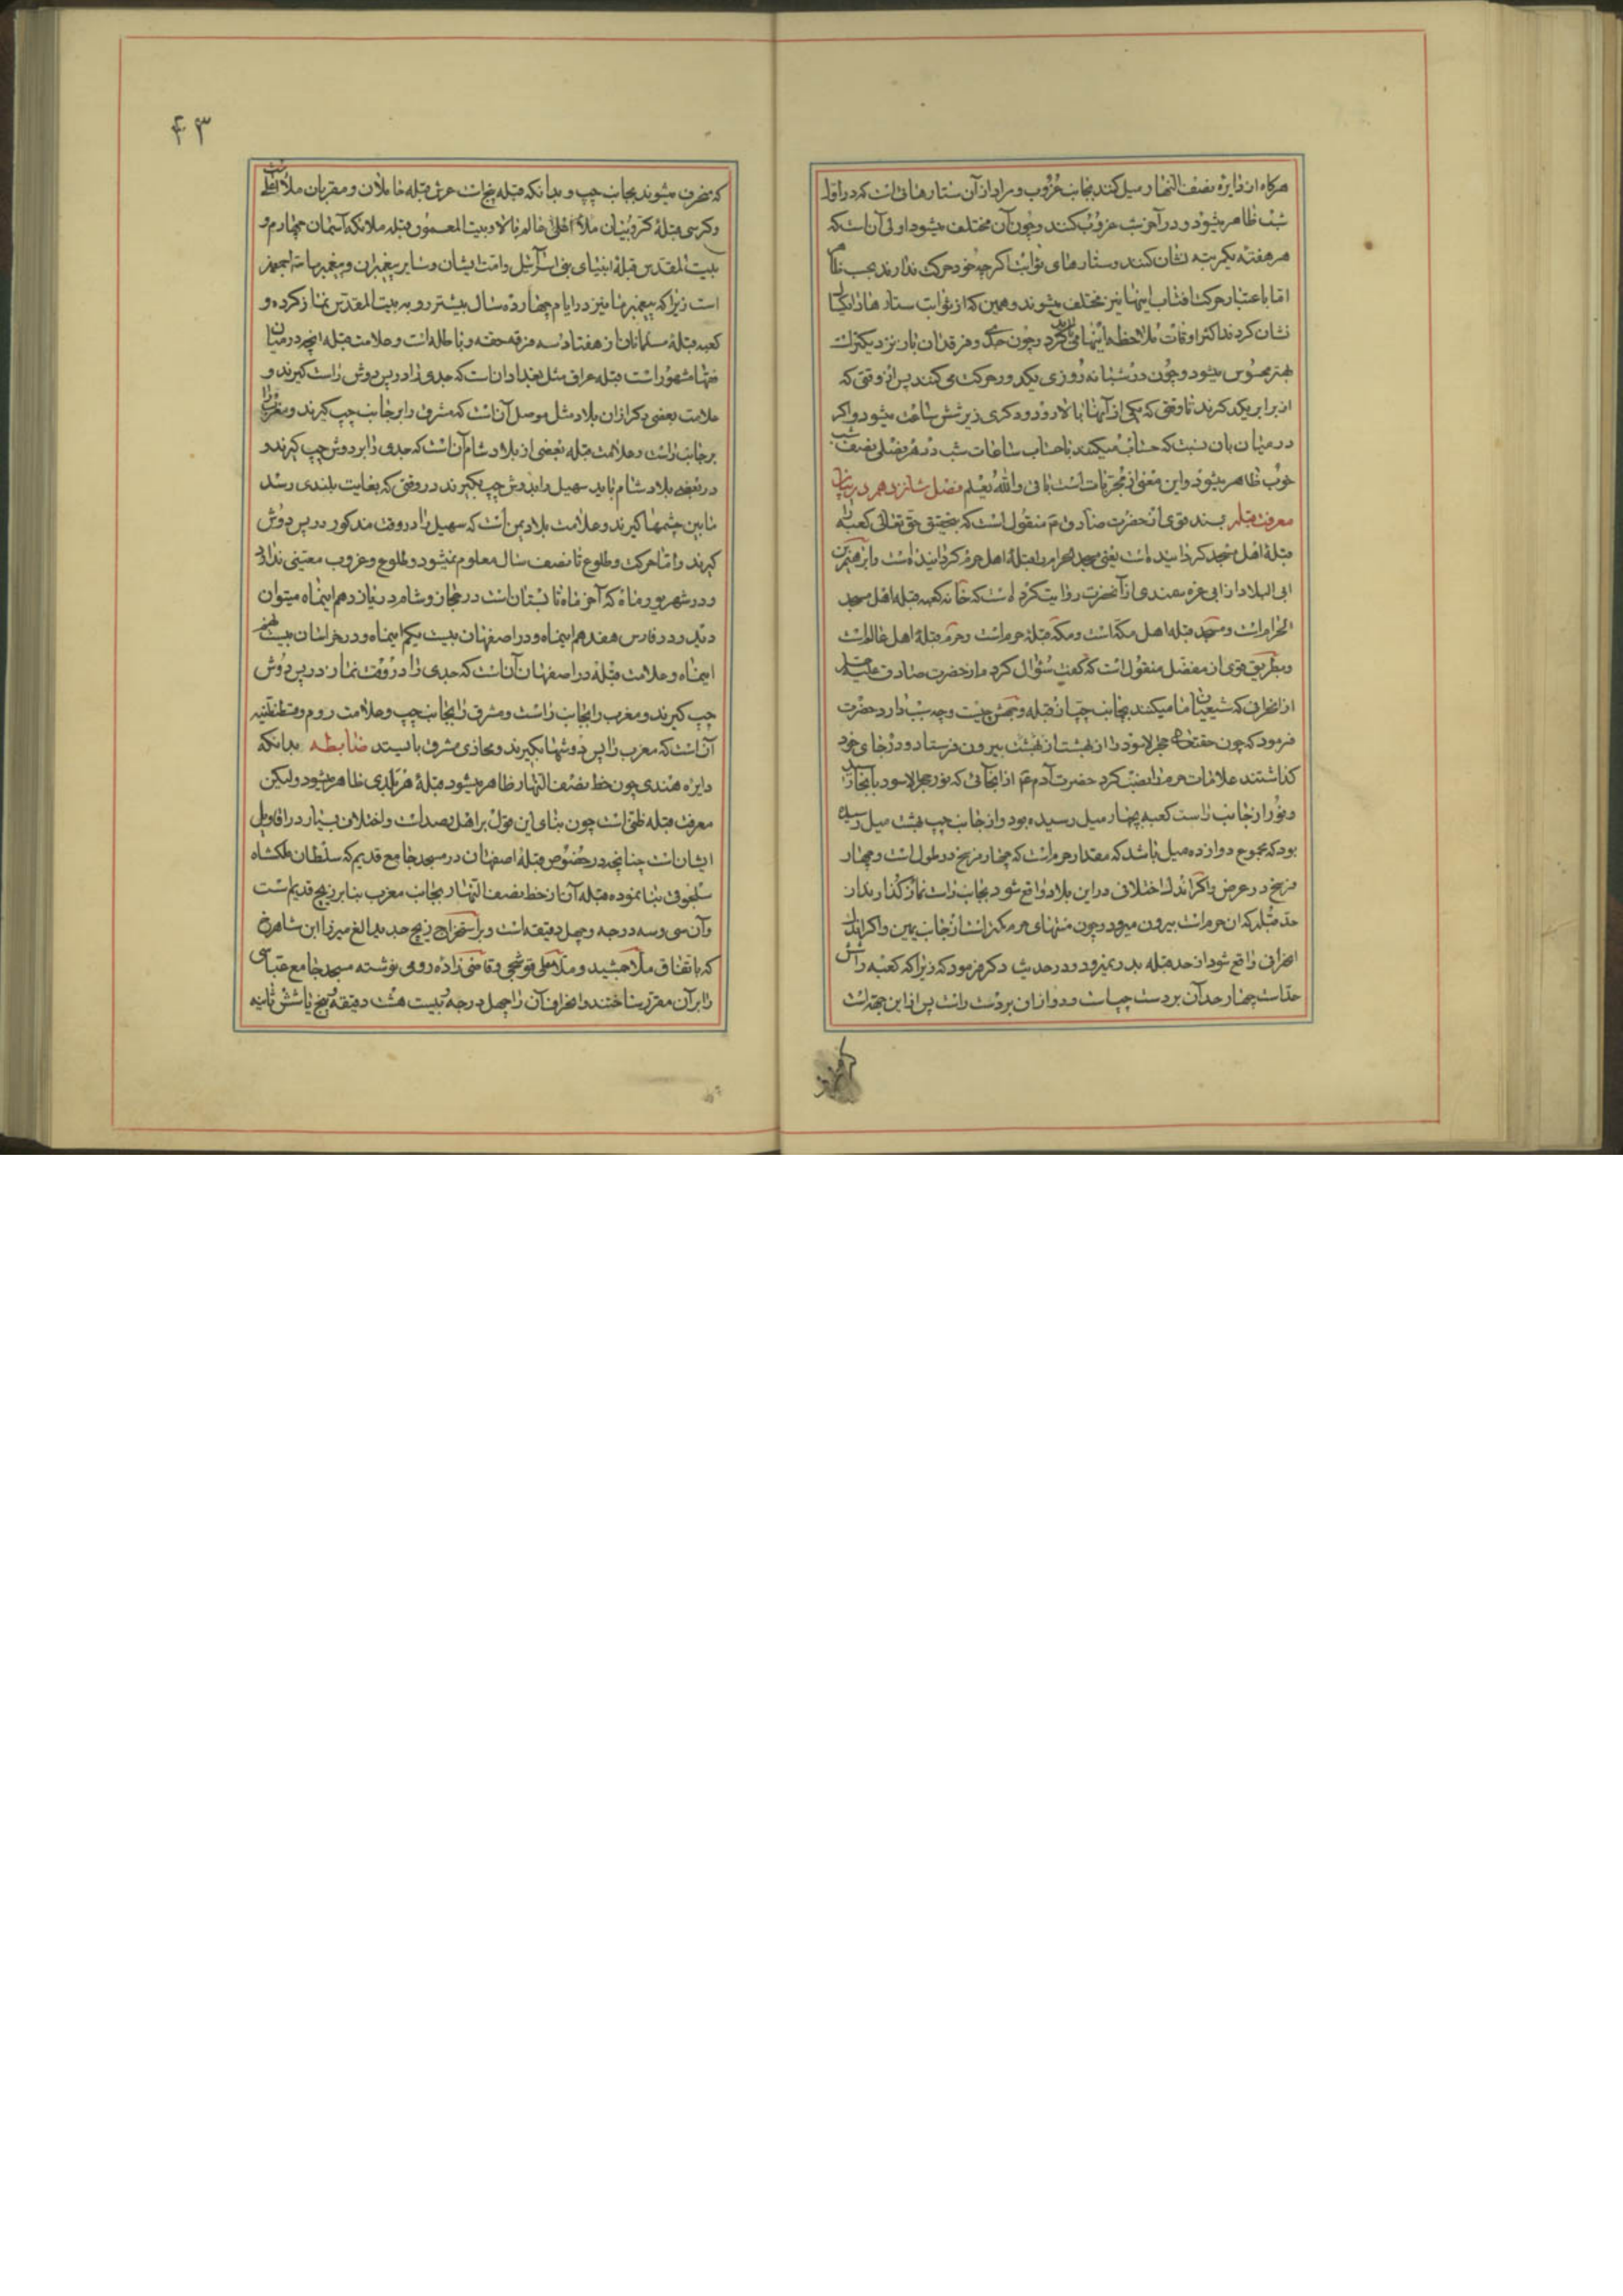 هرکاه از دایره نصف النهار میل کنند بجانب غروب و مراد از آن ستارهائی است که در اول
شب ظاهر میشود و در آخر شب غروب کنند و چون آن مختلف میشود اولی آن است که
هر هفته یکمرتبه نشان کنند و ستارهای ثوابت اگرچه خود حرکت ندارند بحسب ظاهر
اما باعتبار حرکت افتاب اینها نیز مختلف میشوند و همین که از ثوابت ستارها را یکبار
نشان کردند اکثر اوقات ملاحظه اینها می کرد و چون جدی و فرقدان بار نزدیکتر است
بهتر محسوس میشود و چون در شبانه روزی یکدور حرکت می کنند پس از وقتی که
از برابر یکدیگرند تا وقتی که یکی از آنها بالا رود و دکری زیر شش ساعت میشود و اکر
در میان بان نسبت که حساب میکنند باحساب ساعات شب در هر فصلی نصف شب
خوب ظاهر میشود و این معنی از مجربات است باقی والله یعلم فصل شانزدهم در بیان
معرفت قبله بسند قوی از حضرت صادق ع منقول است که بتحقیق حق تعالی کعبه را
قبله اهل مسجد کردانیده است یعنی مسجد الحرام را قبله اهل حرم کردانیده است و ابرهیم بن
ابی البلاد از ابی غره از آنحضرت روایت کرده است که خانه کعبه قبله اهل مسجد
الحرام است و مسجد قبله اهل مکه است و مکه قبله حرم است و حرم قبله اهل عالم است
و بطریق قوی از مفضل منقول است که کفت سؤال کردم از حضرت صادق علیه السلم
از انحرافی که شیعیان ما میکنند بجانب چپ از قبله وجه سبب دارد حضرت
فرمود که چون حقتعالی حجر الاسود را از بهشت بیرون فرستاد و در جای خود
کذاشتند علامات حرم را نصب کرد حضرت آدم ع از انجائی که نور حجر الاسود بانجا رسید
و نور از جانب راست کعبه چهار میل رسیده بود و از جانب چپ هشت میل رسیده
بود که مجموع دوازده میل باشد که مقدار حرم است که چهار فرسخ در طول است و چهار
فرسخ در عرض و اکر اندک اختلافی در این بلاد واقع شود بجانب راست نماز کذار بدان
حد قبله که ان حرم است بیرون میرود و چون منتهای حرم کمتر است از جانب یمین و اکر اندک
انحرافی واقع شود از حد قبله بدر نمیرود و در حدیث دکر فرمود که زیرا که کعبه را شش
حد است چهار حد آن بر دست چپ است و دو از ان بر دست راست پس از این جهة است
۴۳
که منحرف میشوند بجانب چپ و بدانکه قبله پنج است عرش قبله حاملان و مقربان ملأ اعلی است
و کرسی قبله کروبیان ملأ اعلی عالم بالا و بیت المعمور قبله ملائکه آسمان چهارم و
بیت المقدس قبله انبیای بنی اسرائیل و امت ایشان و سایر پیغمبران و پیغمبر ما
است زیرا که پیغمبر ما نیز در ایام چهارده سال بیشتر رو به بیت المقدس نماز کرده و
کعبه قبله مسلمانان از هفتاد سه فرقه محقه و باطله است و علامت قبله انچه در میان
فقها مشهور است قبله عراق مثل بغداد ان است که جدی را در پس دوش راست کیرند و
علامت بعضی دکر از ان بلاد مثل موصل آن است که مشرق را بر جانب چپ کیرند و مغرب را
بر جانب راست و علامت قبله بعضی از بلاد شام آن است که جدی را بر دوش چپ کیرند و
در بعضی بلاد شام باید سهیل را بدوش چپ بکیرند در وقتی که بغایت بلندی رسد
مابین چشمها کیرند و علامت بلاد یمن است که سهیل را در وقت مذکور در پس دوش
کیرند و اما حرکت و طلوع تا نصف سال معلوم نمیشود و طلوع و غروب معینی ندارد
و در شهریور ماه که آخر ماه تابستان است در حجاز و شام در یازدهم اینماه میتوان
دید و در فارس هفدهم اینماه و در اصفهان بیست یکم اینماه و در خراسان بیست پنجم
اینماه و علامت قبله در اصفهان آن است که جدی را در وقت نماز در پس دوش
چپ کیرند و مغرب را بجانب راست و مشرق را بجانب چپ و علامت روم و قسطنطنیه
آن است که مغرب را پس دوشها بکیرند و محاذی مشرق بایستد ضابطه بدانکه
دایره هندی چون خط نصف النهار ظاهر میشود قبله هر بلدی ظاهر میشود ولیکن
معرفت قبله ظنی است چون بنای این قول بر اهل رصد است و اختلاف بسیار در اقاویل
ایشان است چنانچه در خصوص قبله اصفهان در مسجد جامع قدیم که سلطان ملکشاه
سلجوقی بنا نموده قبله آن از خط نصف النهار بجانب مغرب بنابر زیج قدیم است
و آن سی و سه درجه و چهل دقیقه است و بر استخراج زیج جدید الغ میرزا ابن شاهرخ
که باتفاق ملا جمشید و ملا علی قوشجی و قاضی زاده رومی نوشته مسجد جامع عباسی
را بر آن مقرر ساختند و انحراف آن را چهل درجه و بیست هشت دقیقه و پنج یا شش ثانیه